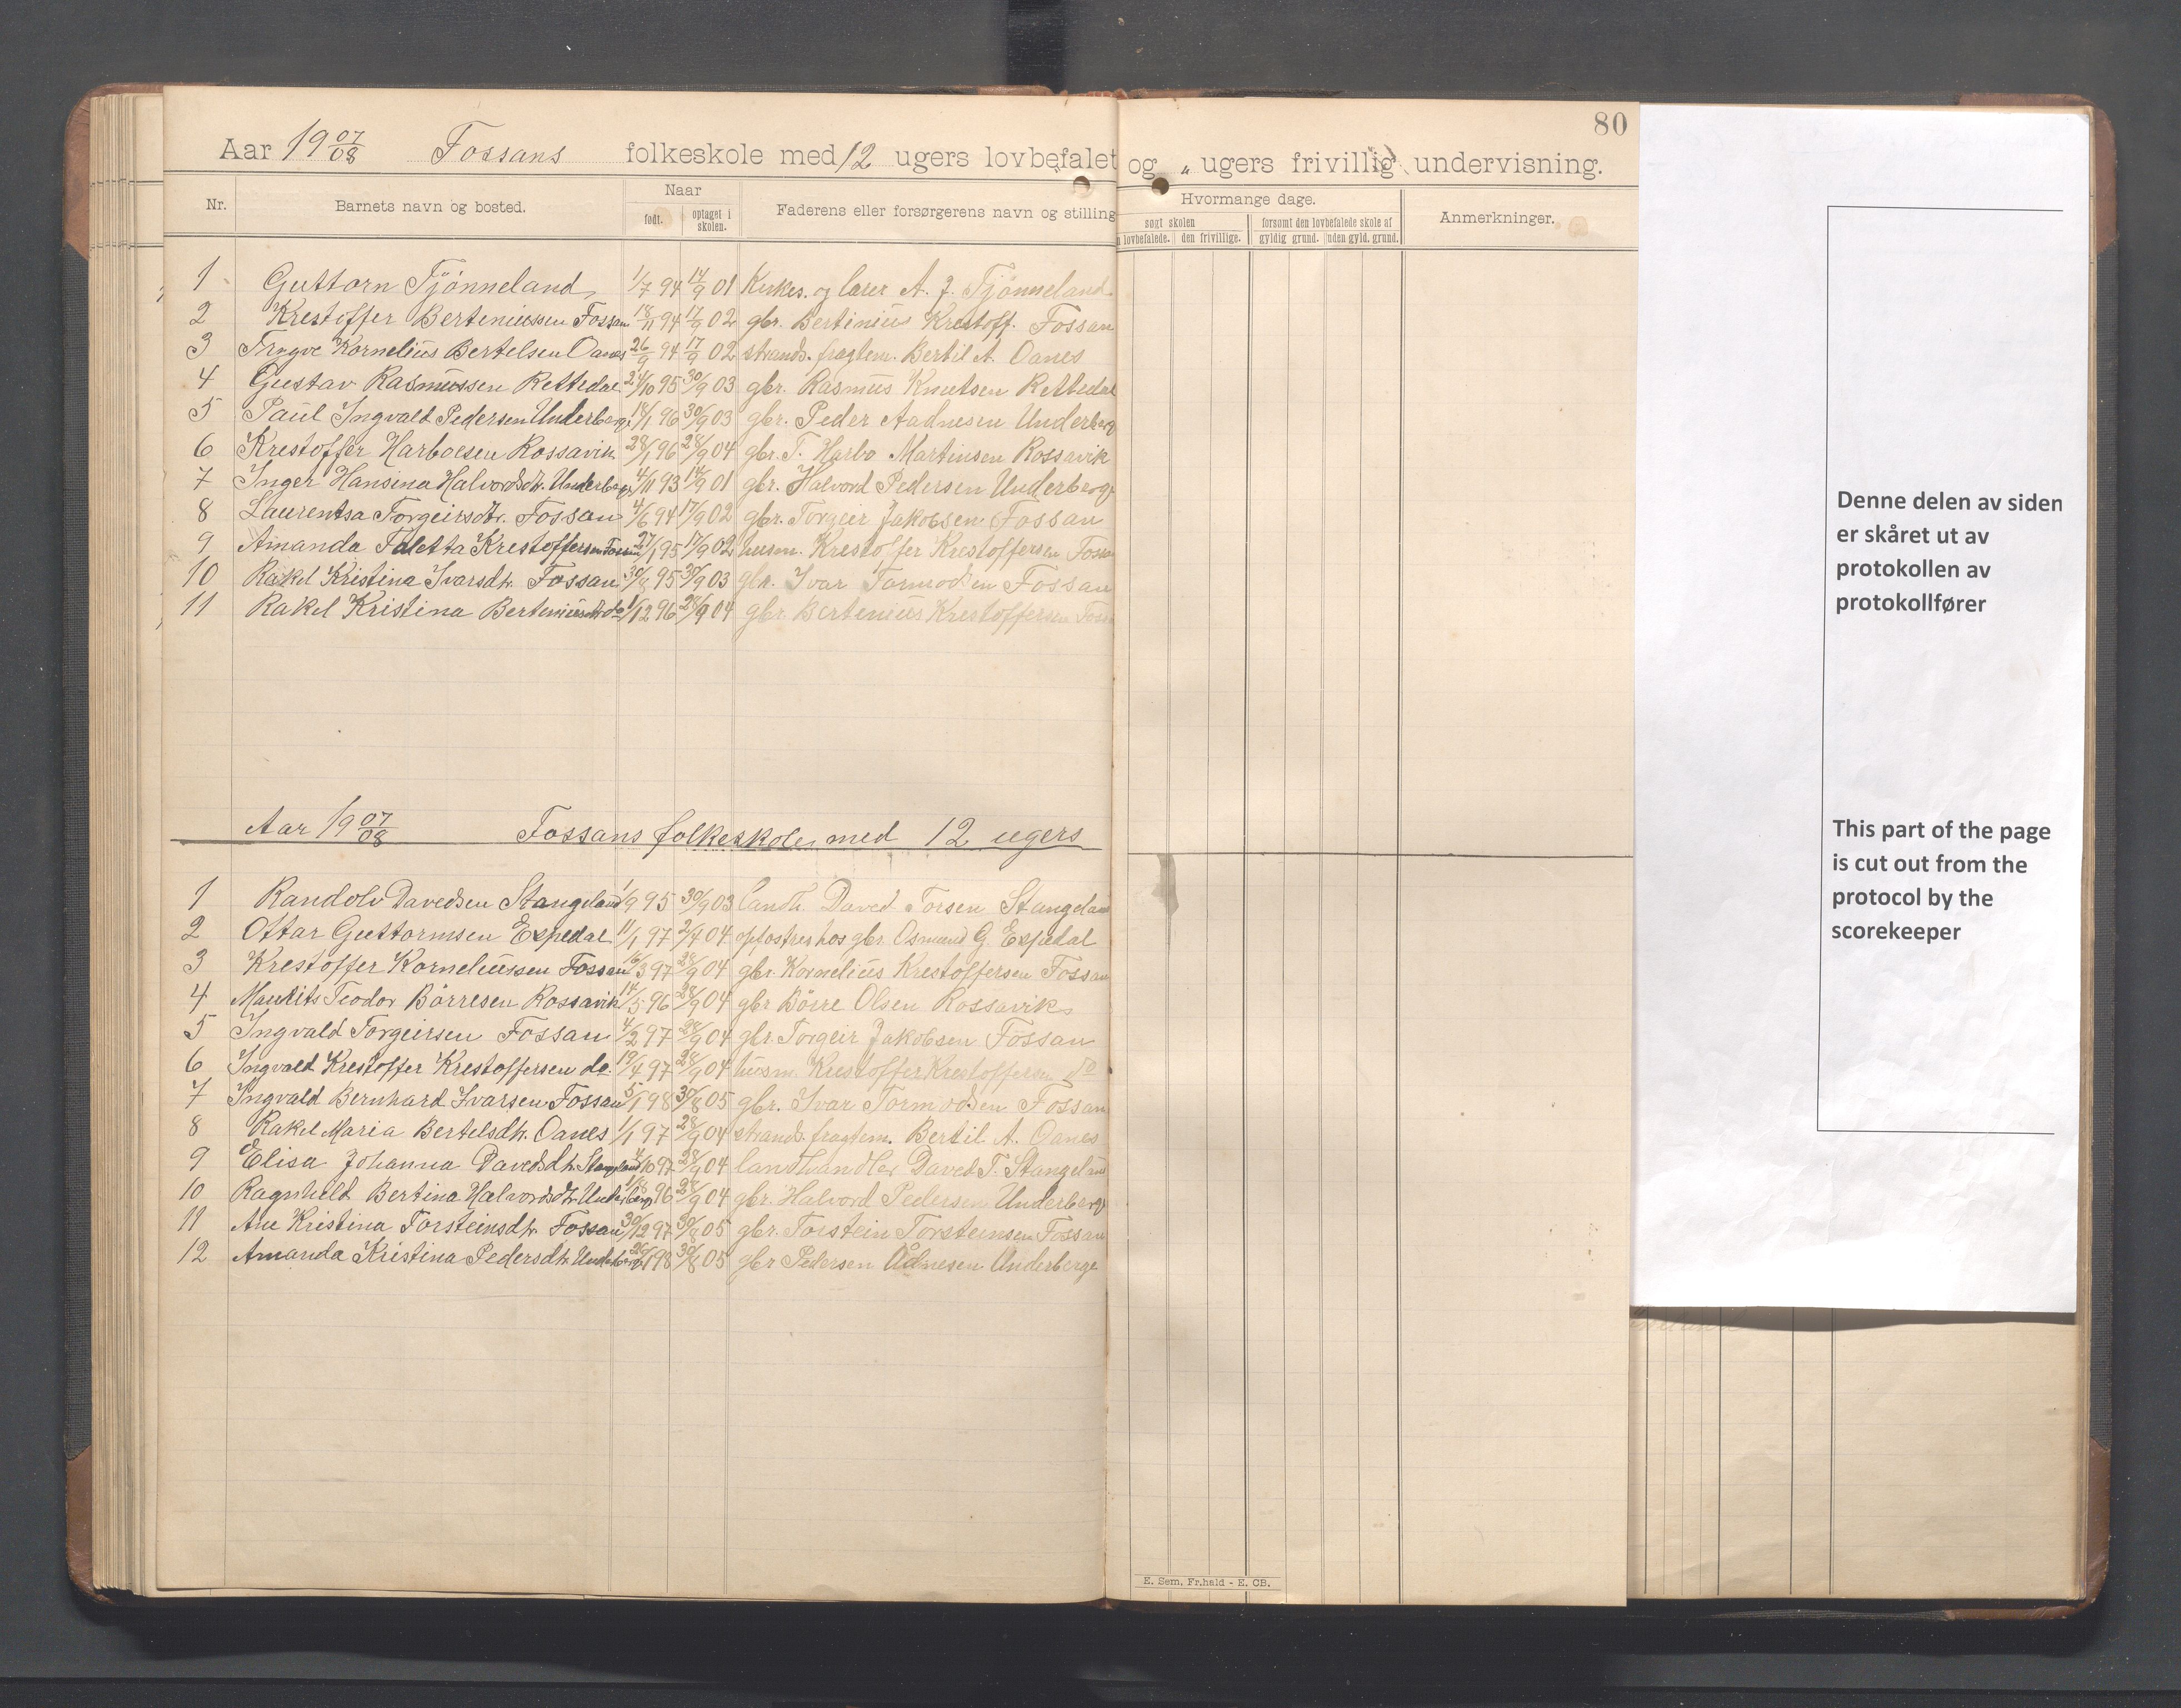 80
Aar 19 07/08 Fossans folkeskole med 12 ugers lovbefalet og „ ugers frivillig undervisning.
Nr. Barnets navn og bosted. Naar født. optaget i skolen. Faderens eller forsørgerens navn og stilling Hvormange dage. søgt skolen lovbefalede. den frivillige. forsømt den lovbefalede skole af gyldig grund. uden gyld. grund. Anmerkninger.
1 Guttorn Tjönneland 1/7 94 14/9 01 Kirkes. og lærer A. J. Tjönneland
2 Krestoffer Berteniussen Fossan 18/11 94 17/9 02 gbr. Bertinius Krestoff. Fossan
3 Trygve Kornelius Bertelsen Oanes 26/9 94 17/9 02 strands. fragtem. Bertil A. Oanes
4 Gustav Rasmussen Rettedal 24/10 95 30/9 03 gbr. Rasmus Knutsen Rettedal
5 Paul Ingvald Pedersen Underberge 18/1 96 30/9 03 gbr. Peder Aadnesen Underberg
6 Krestoffer Harboesen Rossavik 28/1 96 28/9 04 gbr. T. Harbo Martinsen Rossavik
7 Inger Hansina Halvordsdtr. Underberge 4/11 93 14/9 01 gbr. Halvord Pedersen Underberge
8 Laurentsa Torgeirsdtr. Fossan 4/6 94 17/9 02 gbr. Torgeir Jakobsen Fossan
9 Amanda Taletta Krestoffersen Fossan 27/1 95 17/9 02 husm. Krestoffer Krestoffersen Fossan
10 Rakel Kristina Ivarsdtr. Fossan 30/8 95 30/9 03 gbr. Ivar Tormodsen Fossan
11 Rakel Kristina Berteniusdtr do 1/12 96 28/9 04 gbr. Bertenius Krestoffersen Fossan
Aar 19 07/08 Fossans folkeskole med 12 ugers
1 Randolv Davedsen Stangeland 1/9 95 30/9 03 landh. Daved Torsen Stangeland
2 Ottar Guttormsen Espedal 11/1 97 2/4 04 opfostres hos gbr. Osmund G. Espedal
3 Krestoffer Korneliussen Fossan 16/3 97 28/9 04 gbr. Kornelius Krestoffersen Fossan
4 Maurits Teodor Börresen Rossavik 14/5 96 28/9 04 gbr Börre Olsen Rossavik
5 Ingvald Torgeirsen Fossan 4/2 97 28/9 04 gbr. Torgeir Jakobsen Fossan
6 Ingvald Krestoffer Krestoffersen do. 19/4 97 28/9 04 husm. Krestoffer Krestoffersen do
7 Ingvald Bernhard Ivarsen Fossan 5/1 98 30/8 05 gbr. Ivar Tormodsen Fossan
8 Rakel Maria Bertelsdtr. Oanes 1/1 97 28/9 04 strands. fragtem. Bertil A. Oanes
9 Elisa Johanna Davedsdtr. Stangeland 4/10 97 28/9 04 landhandler Daved T. Stangeland
10 Ragnhild Bertina Halvordsdtr. Underberge 96 28/9 04 gbr. Halvord Pedersen Underberge
11 Ane Kristina Torsteinsdtr. Fossan 30/12 97 30/8 05 gbr. Torstein Torsteinsen Fossan
12 Amanda Kristina Pedersdtr. Underberge 26/1 98 30/8 05 gbr Pedersen Ådnesen Underberge
E. Sem, Fr.hald - E. CB.
Denne delen av siden
er skåret ut av
protokollen av
protokollfører
This part of the page
is cut out from the
protocol by the
scorekeeper